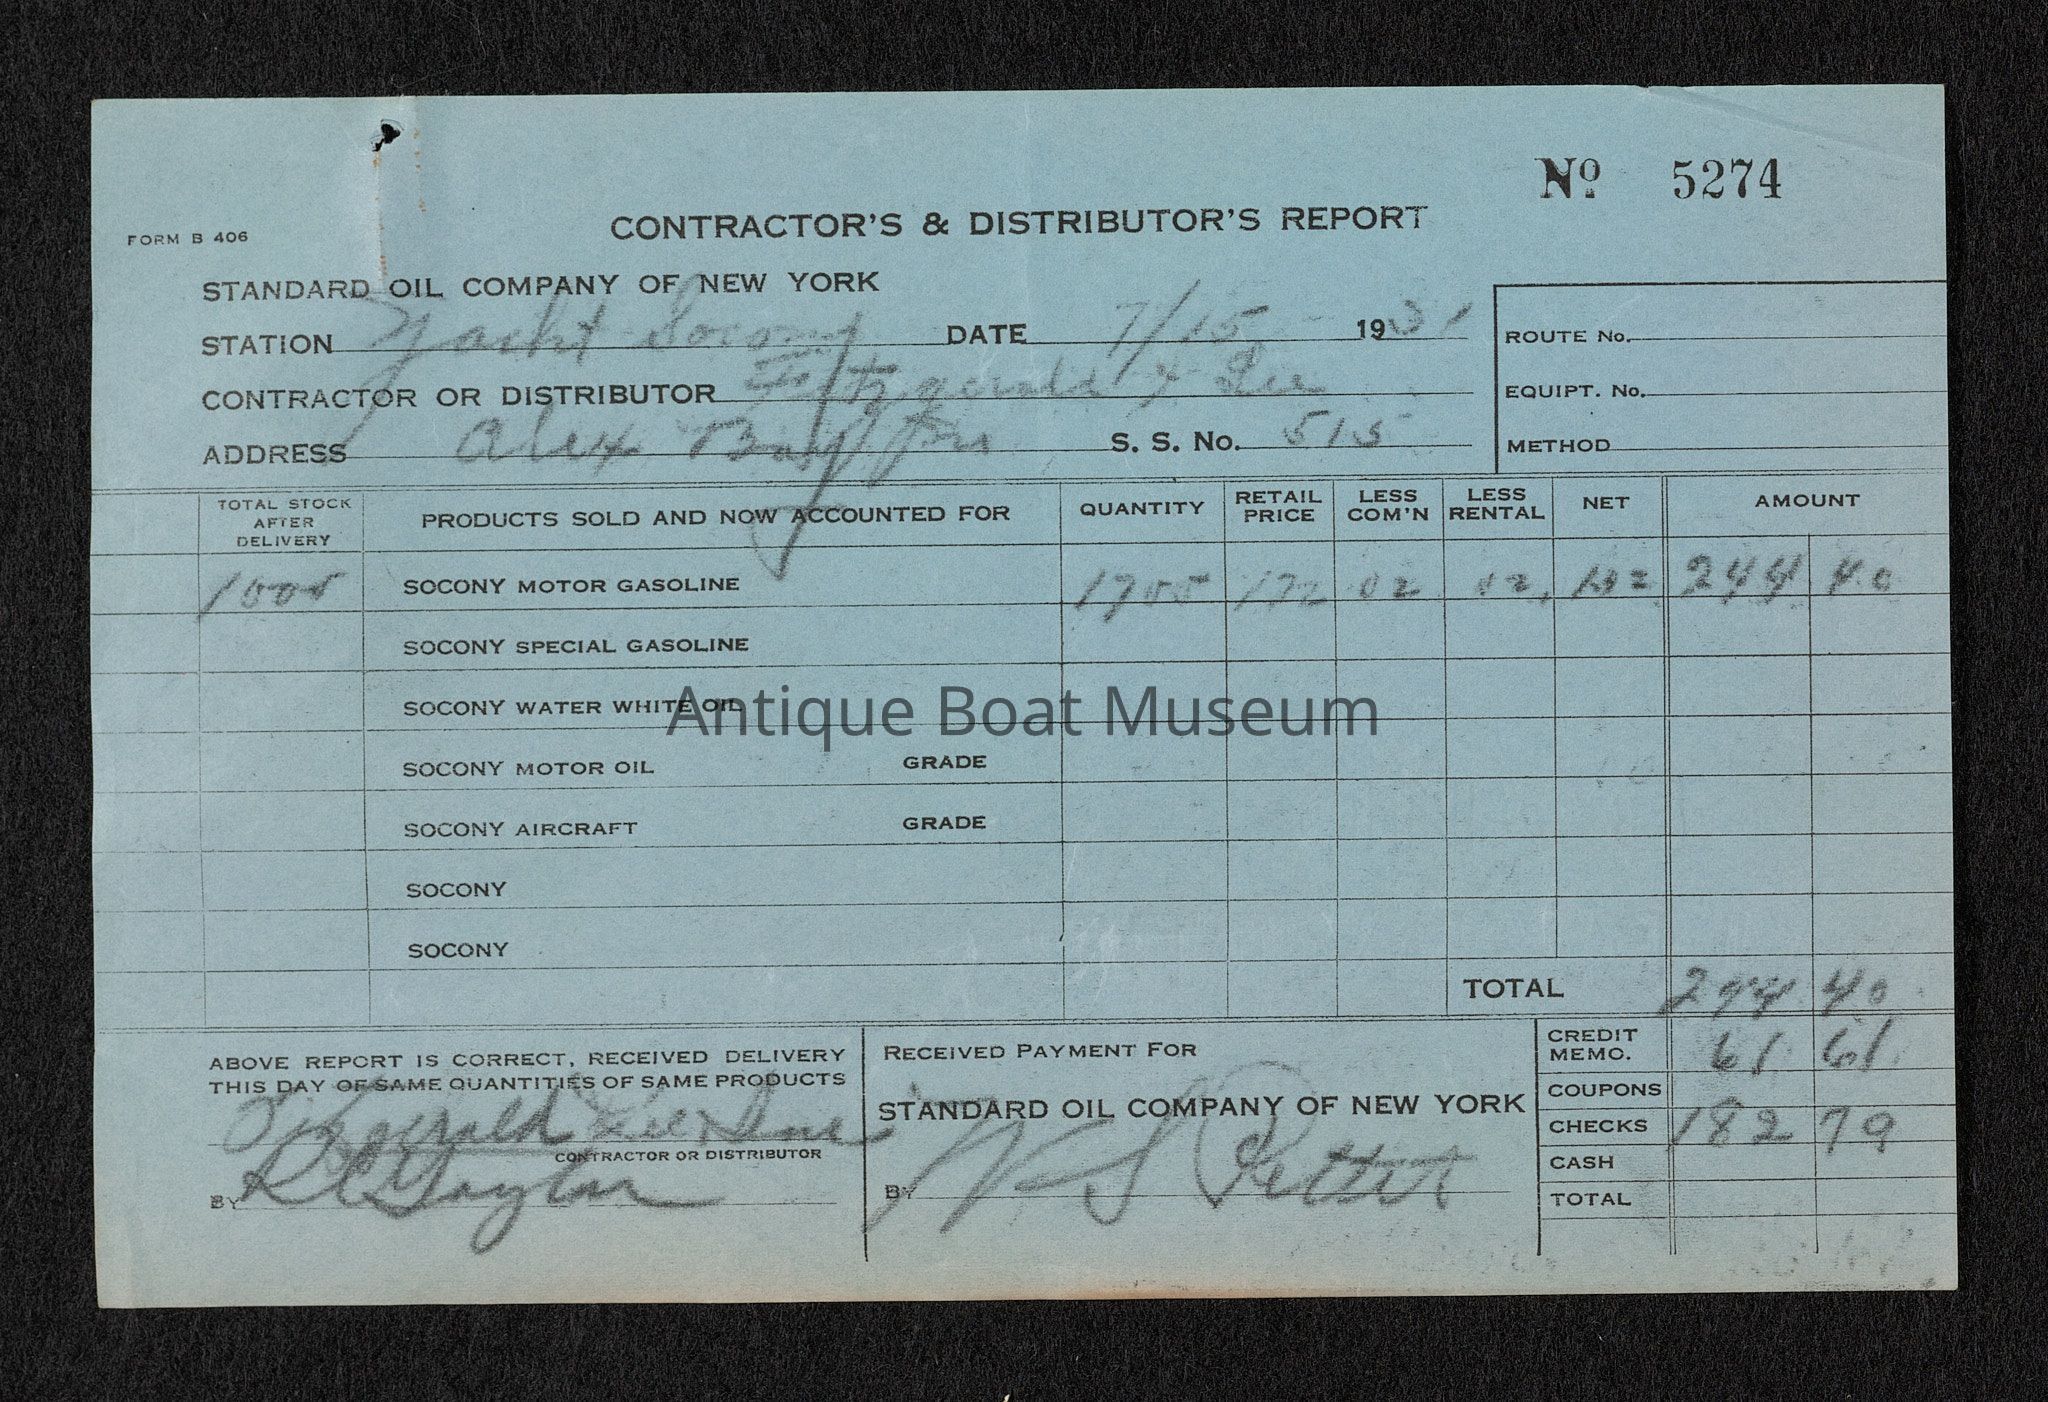 No 5274
CONTRACTOR'S & DISTRIBUTOR'S REPORT
FORM B 406
STANDARD OIL COMPANY OF NEW YORK
STATION Yacht Socony DATE 7/15 1931
ROUTE No.
CONTRACTOR OR DISTRIBUTOR Fitzgerald & Lee
EQUIPT. No.
ADDRESS Alex Bay S. S. No. 515
METHOD
TOTAL STOCK AFTER DELIVERY PRODUCTS SOLD AND NOW ACCOUNTED FOR QUANTITY RETAIL PRICE LESS COM'N LESS RENTAL NET AMOUNT
SOCONY MOTOR GASOLINE 172 02 02 244 40
SOCONY SPECIAL GASOLINE
SOCONY WATER WHITE OIL
Antique Boat Museum
SOCONY MOTOR OIL GRADE
SOCONY AIRCRAFT GRADE
SOCONY
SOCONY
TOTAL 244 40
ABOVE REPORT IS CORRECT, RECEIVED DELIVERY
THIS DAY OF SAME QUANTITIES OF SAME PRODUCTS
Fitzgerald Lee
CONTRACTOR OR DISTRIBUTOR
BY Taylor
RECEIVED PAYMENT FOR
STANDARD OIL COMPANY OF NEW YORK
BY Pettit
CREDIT MEMO. 61 61
COUPONS
CHECKS 182 79
CASH
TOTAL